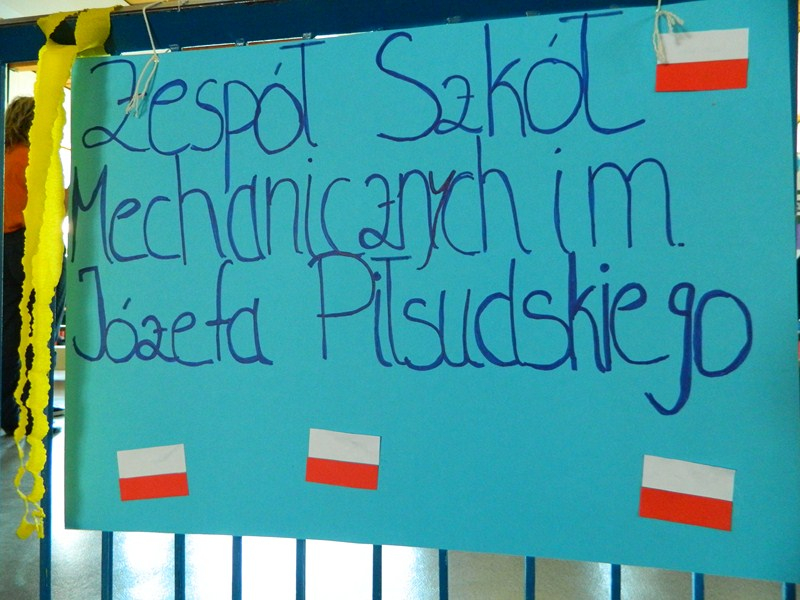 Zespół Szkół
Mechanicznych im.
Józefa Piłsudskiego